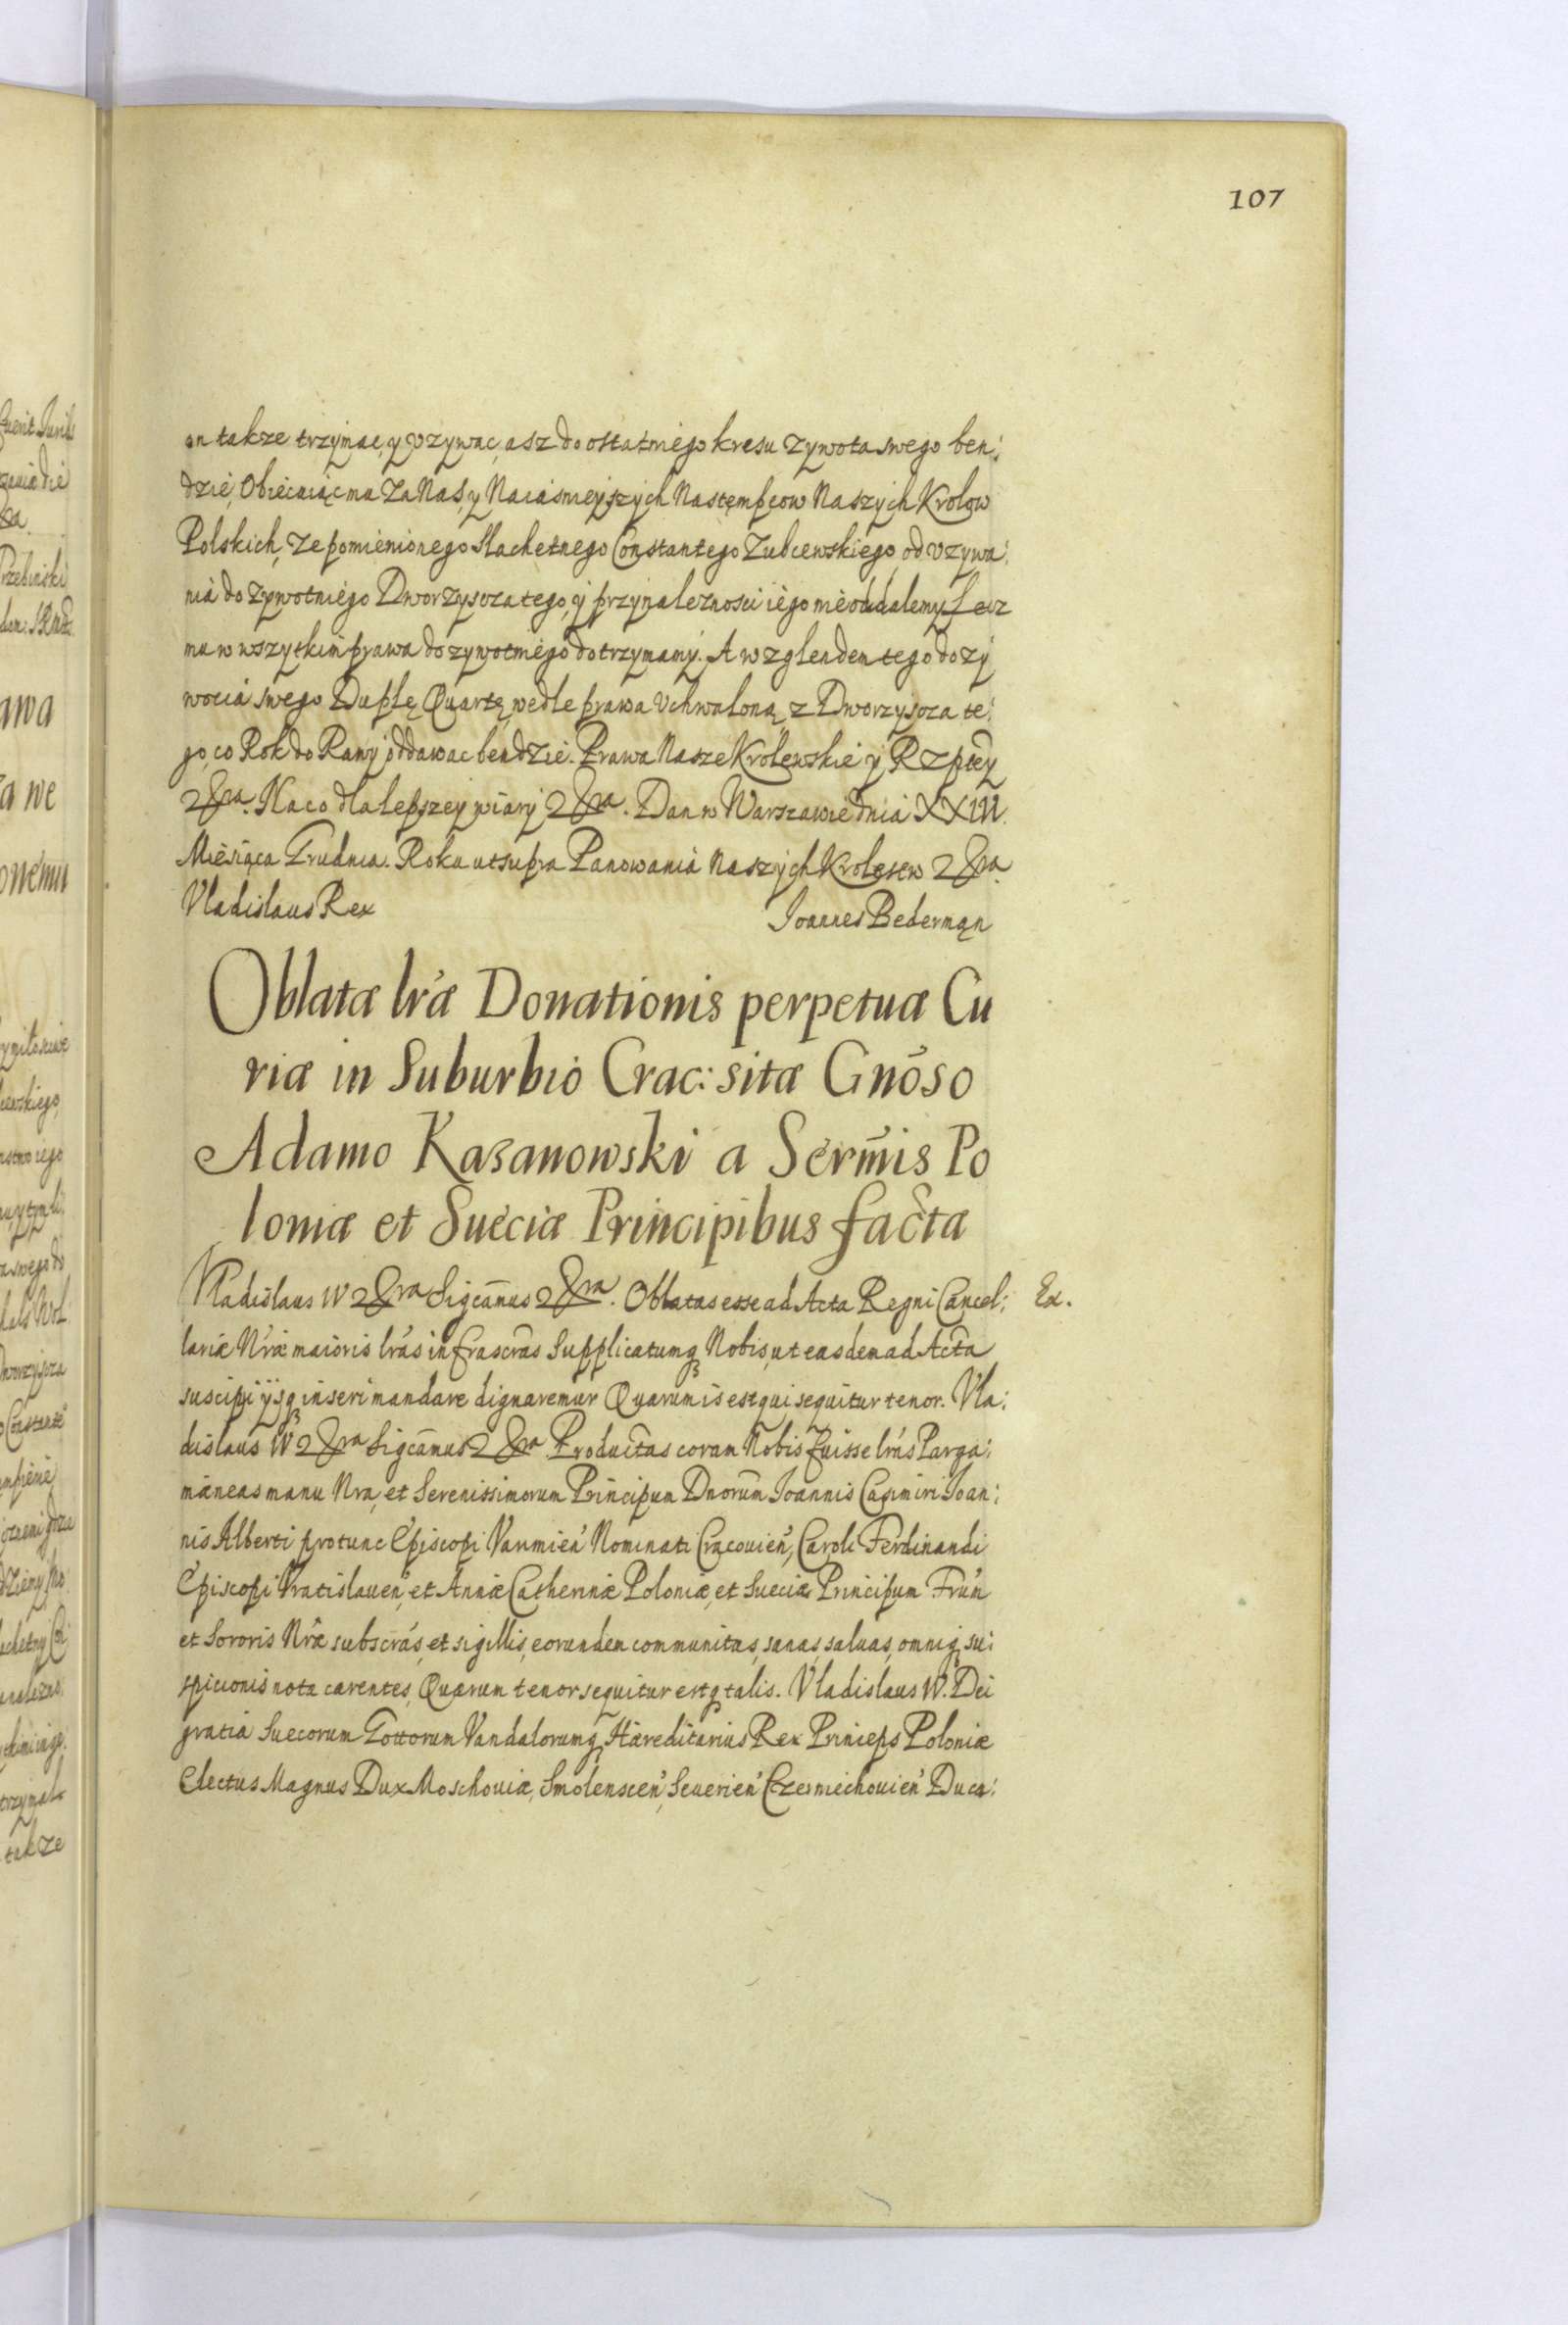 107
on takze trzymac, y vzywac, asz do ostatniego kresu zywota swego ben:
dzie, Obiecuiąc mu za Nas, y Naiasnieyszych Nastempcow Naszych Krolow
Polskich, ze pomienionego Slachetnego Constantego Zubcewskiego od vzywa:
nia do zywotniego Dworzyscza tego, y przynaleznosci iego nie oddalemy Lecz
mu w wszytkim prawa dozywotniego dotrzymamy. A wzglendem tego dozy
wocia swego Duplę Quartę wedle prawa vchwaloną z Dworzyscza te:
go, co Rok do Rawy oddawac bendzie. Prawa Nasze Krolewskie y Rzptey
2ra. Na co dla lepszey wiary 2ra. Dan w Warszawie dnia XXIIII.
Miesiąca Grudnia. Roku ut supra Panowania Naszych Krolestw 2ra
Vladislaus Rex Joannes Bederman
Oblatæ lræ Donationis perpetuæ Cu
riæ in Suburbio Crac: sitæ Gnoso
Adamo Kazanowski a Sermis Po
loniæ et Sueciæ Principibus factæ
Vladislaus IV 2ra Sigcamus 2ra. Oblatas esse ad Acta Regni Cancel: Ex.
lariæ Nræ maioris lras infrascras Supplicatumq Nobis, ut easdem ad Acta
suscipi ijsq inseri mandare dignaremur Quarum is est qui sequitur tenor. Vla:
dislaus IV 2ra Sigcamus 2ra Productas coram Nobis fuisse lras Parga:
mæneas manu Nra, et Serenissimorum Principum Dnorum Joannis Casimiri Joan:
nis Alberti pro tunc Episcopi Varmien Nominati Cracouien, Caroli Ferdinandi
Episcopi Vratislauen, et Annæ Catherinæ Poloniæ, et Sueciæ Principum Frum
et Sororis Nræ subscras, et sigillis, eorundem communitas, sanas, saluas, omniq su:
spicionis nota carentes, Quarum tenor sequitur estq talis. Vladislaus IV. Dei
gratia Suecorum Gottorum Vandalorumq Hæreditarius Rex Princeps Poloniæ
Electus Magnus Dux Moschouiæ, Smolenscen, Seuerien Czerniechouien Duca: